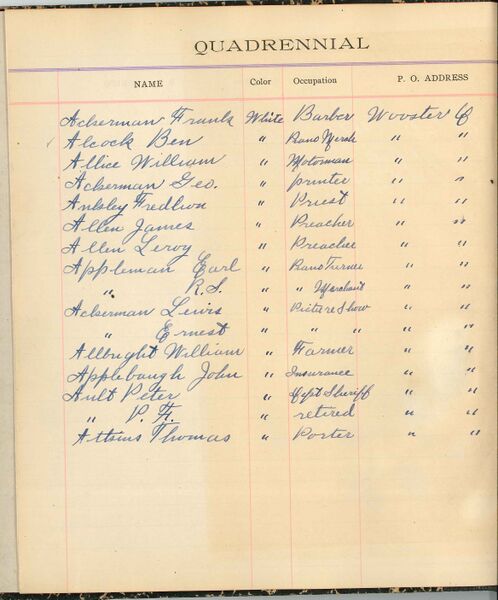 QUADRENNIAL
NAME Color Occupation P. O. ADDRESS
Ackerman Frank White Barber Wooster O
Alcock Ben " Piano Merch " "
Allice William " Motorman " "
Ackerman Geo. " printer " "
Ankley " Priest " "
Allen James " Preacher " "
Allen Leroy " Preacher " "
Appleman Earl " Piano Tuner " "
" R.S. " " Merchant " "
Ackerman Lewis " Picture Show " "
" Ernest " " " " "
Allbright William " Farmer " "
Applebaugh John " Insurance " "
Ault Peter " Dept Sheriff " "
" P. H. " retired " "
Thomas " Porter " "